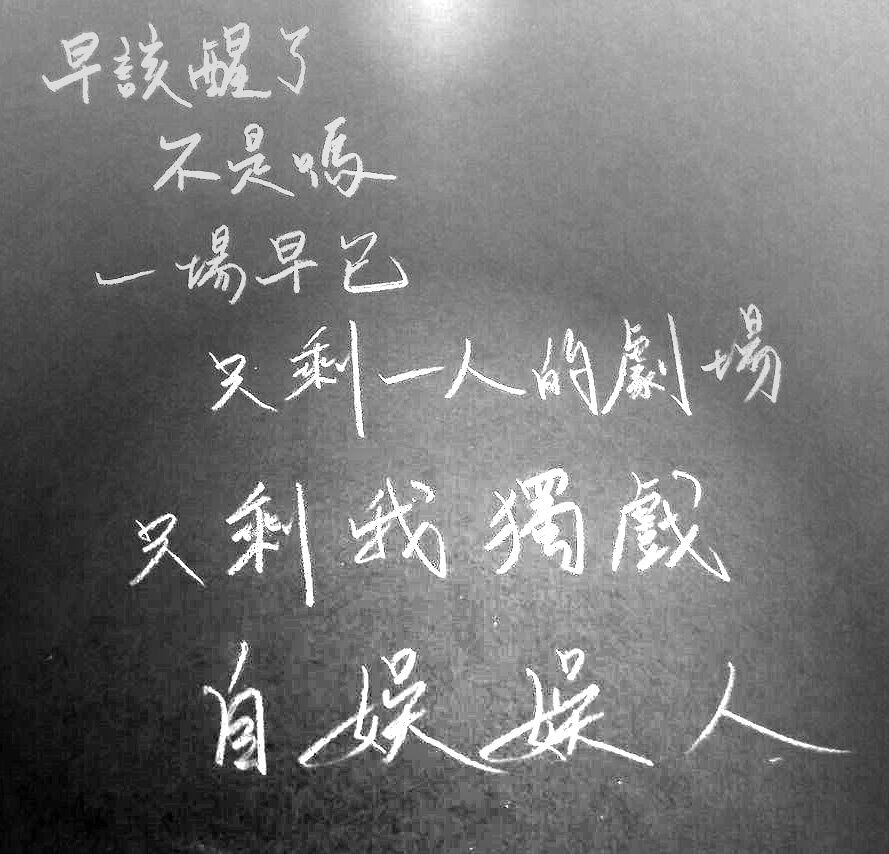 早該醒了
不是嗎
一場早已
只剩一人的劇場
只剩我獨戲
自娛娛人